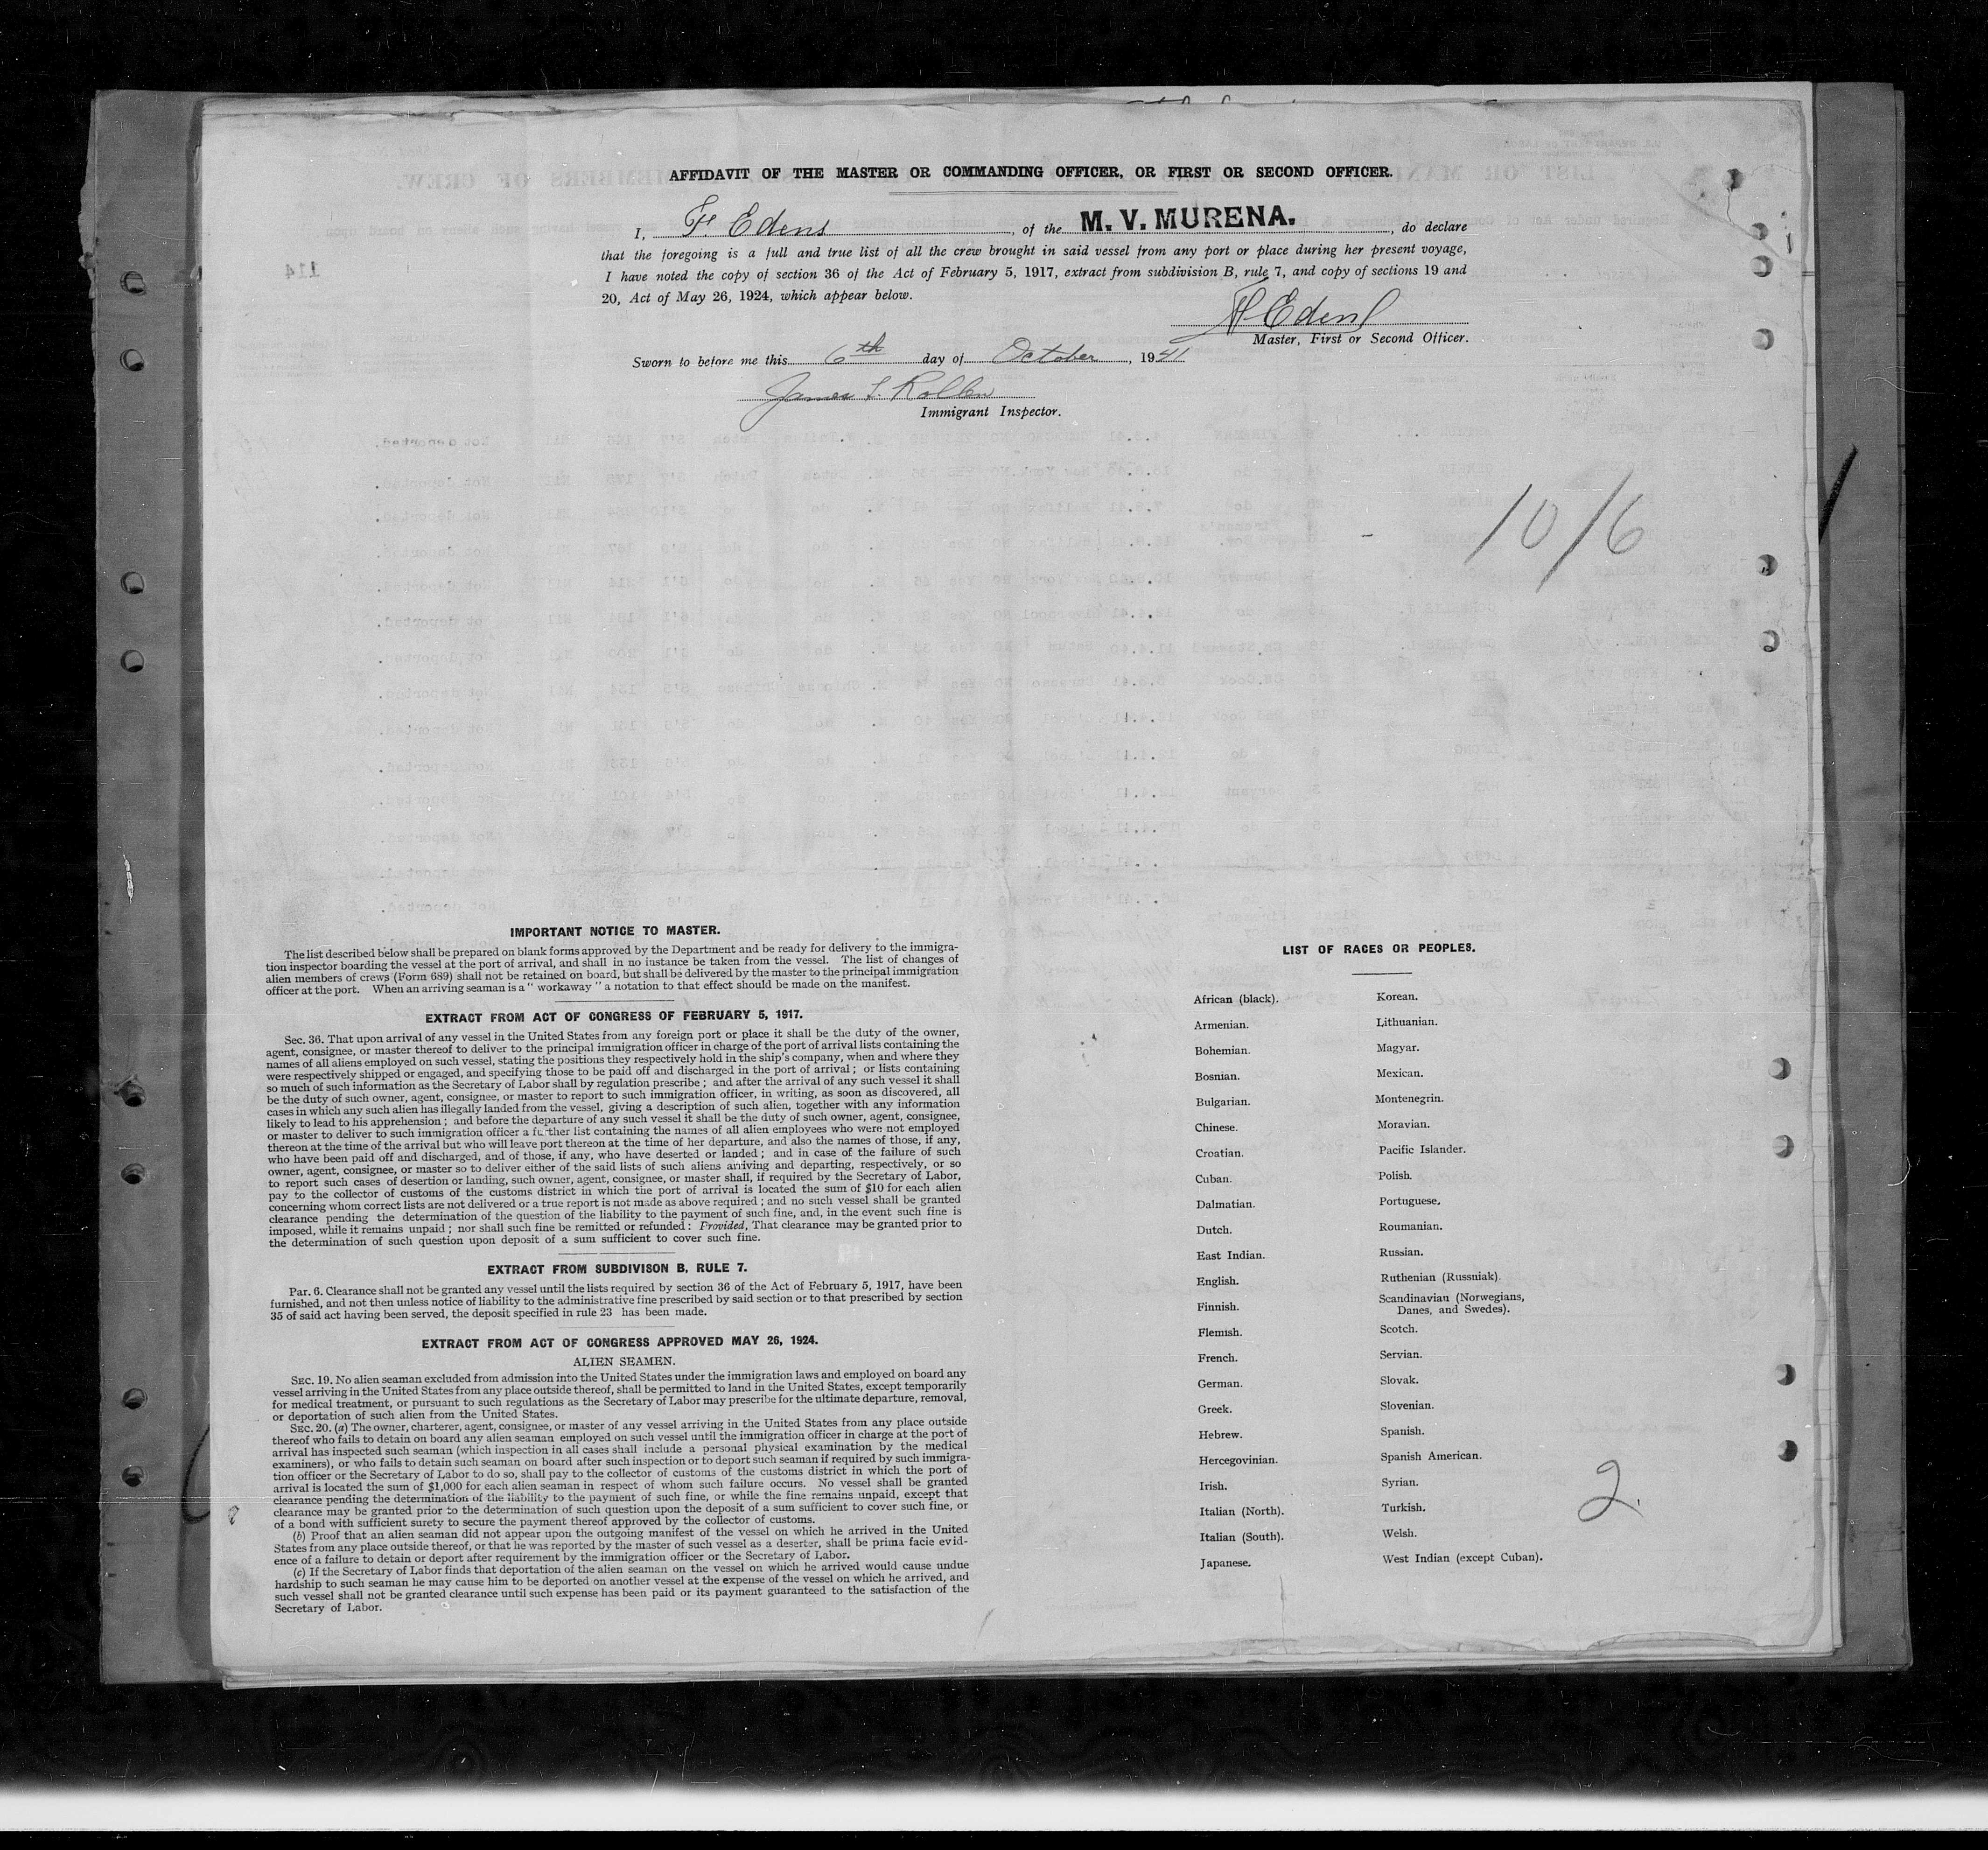 AFFIDAVIT OF THE MASTER OR COMMANDING OFFICER, OR FIRST OR SECOND OFFICER.
I, F. Edens, of the M. V. MURENA., do declare
that the foregoing is a full and true list of all the crew brought in said vessel from any port or place during her present voyage,
I have noted the copy of section 36 of the Act of February 5, 1917, extract from subdivision B, rule 7, and copy of sections 19 and
20, Act of May 26, 1924, which appear below.
Edens
Master, First or Second Officer.
Sworn to before me this 6th day of October, 1941
James
Immigrant Inspector.
114
10/6
IMPORTANT NOTICE TO MASTER.
The list described below shall be prepared on blank forms approved by the Department and be ready for delivery to the immigra-
tion inspector boarding the vessel at the port of arrival, and shall in no instance be taken from the vessel. The list of changes of
alien members of crews (Form 689) shall not be retained on board, but shall be delivered by the master to the principal immigration
officer at the port. When an arriving seaman is a " workaway " a notation to that effect should be made on the manifest.
EXTRACT FROM ACT OF CONGRESS OF FEBRUARY 5, 1917.
Sec. 36. That upon arrival of any vessel in the United States from any foreign port or place it shall be the duty of the owner,
agent, consignee, or master thereof to deliver to the principal immigration officer in charge of the port of arrival lists containing the
names of all aliens employed on such vessel, stating the positions they respectively hold in the ship's company, when and where they
were respectively shipped or engaged, and specifying those to be paid off and discharged in the port of arrival ; or lists containing
so much of such information as the Secretary of Labor shall by regulation prescribe ; and after the arrival of any such vessel it shall
be the duty of such owner, agent, consignee, or master to report to such immigration officer, in writing, as soon as discovered, all
cases in which any such alien has illegally landed from the vessel, giving a description of such alien, together with any information
likely to lead to his apprehension ; and before the departure of any such vessel it shall be the duty of such owner, agent, consignee,
or master to deliver to such immigration officer a further list containing the names of all alien employees who were not employed
thereon at the time of the arrival but who will leave port thereon at the time of her departure, and also the names of those, if any,
who have been paid off and discharged, and of those, if any, who have deserted or landed ; and in case of the failure of such
owner, agent, consignee, or master so to deliver either of the said lists of such aliens arriving and departing, respectively, or so
to report such cases of desertion or landing, such owner, agent, consignee, or master shall, if required by the Secretary of Labor,
pay to the collector of customs of the customs district in which the port of arrival is located the sum of $10 for each alien
concerning whom correct lists are not delivered or a true report is not made as above required ; and no such vessel shall be granted
clearance pending the determination of the question of the liability to the payment of such fine, and, in the event such fine is
imposed, while it remains unpaid ; nor shall such fine be remitted or refunded : Provided, That clearance may be granted prior to
the determination of such question upon deposit of a sum sufficient to cover such fine.
EXTRACT FROM SUBDIVISON B, RULE 7.
Par. 6. Clearance shall not be granted any vessel until the lists required by section 36 of the Act of February 5, 1917, have been
furnished, and not then unless notice of liability to the administrative fine prescribed by said section or to that prescribed by section
35 of said act having been served, the deposit specified in rule 23 has been made.
EXTRACT FROM ACT OF CONGRESS APPROVED MAY 26, 1924.
ALIEN SEAMEN.
SEC. 19. No alien seaman excluded from admission into the United States under the immigration laws and employed on board any
vessel arriving in the United States from any place outside thereof, shall be permitted to land in the United States, except temporarily
for medical treatment, or pursuant to such regulations as the Secretary of Labor may prescribe for the ultimate departure, removal,
or deportation of such alien from the United States.
SEC. 20. (a) The owner, charterer, agent, consignee, or master of any vessel arriving in the United States from any place outside
thereof who fails to detain on board any alien seaman employed on such vessel until the immigration officer in charge at the port of
arrival has inspected such seaman (which inspection in all cases shall include a personal physical examination by the medical
examiners), or who fails to detain such seaman on board after such inspection or to deport such seaman if required by such immigra-
tion officer or the Secretary of Labor to do so, shall pay to the collector of customs of the customs district in which the port of
arrival is located the sum of $1,000 for each alien seaman in respect of whom such failure occurs. No vessel shall be granted
clearance pending the determination of the liability to the payment of such fine, or while the fine remains unpaid, except that
clearance may be granted prior to the determination of such question upon the deposit of a sum sufficient to cover such fine, or
of a bond with sufficient surety to secure the payment thereof approved by the collector of customs.
(b) Proof that an alien seaman did not appear upon the outgoing manifest of the vessel on which he arrived in the United
States from any place outside thereof, or that he was reported by the master of such vessel as a deserter, shall be prima facie evid-
ence of a failure to detain or deport after requirement by the immigration officer or the Secretary of Labor.
(c) If the Secretary of Labor finds that deportation of the alien seaman on the vessel on which he arrived would cause undue
hardship to such seaman he may cause him to be deported on another vessel at the expense of the vessel on which he arrived, and
such vessel shall not be granted clearance until such expense has been paid or its payment guaranteed to the satisfaction of the
Secretary of Labor.
LIST OF RACES OR PEOPLES.
African (black).
Armenian.
Bohemian.
Bosnian.
Bulgarian.
Chinese.
Croatian.
Cuban.
Dalmatian.
Dutch.
East Indian.
English.
Finnish.
Flemish.
French.
German.
Greek.
Hebrew.
Hercegovinian.
Irish.
Italian (North).
Italian (South).
Japanese.
Korean.
Lithuanian.
Magyar.
Mexican.
Montenegrin.
Moravian.
Pacific Islander.
Polish.
Portuguese.
Roumanian.
Russian.
Ruthenian (Russniak).
Scandinavian (Norwegians,
Danes, and Swedes).
Scotch.
Servian.
Slovak.
Slovenian.
Spanish.
Spanish American.
Syrian.
Turkish.
Welsh.
West Indian (except Cuban).
2.